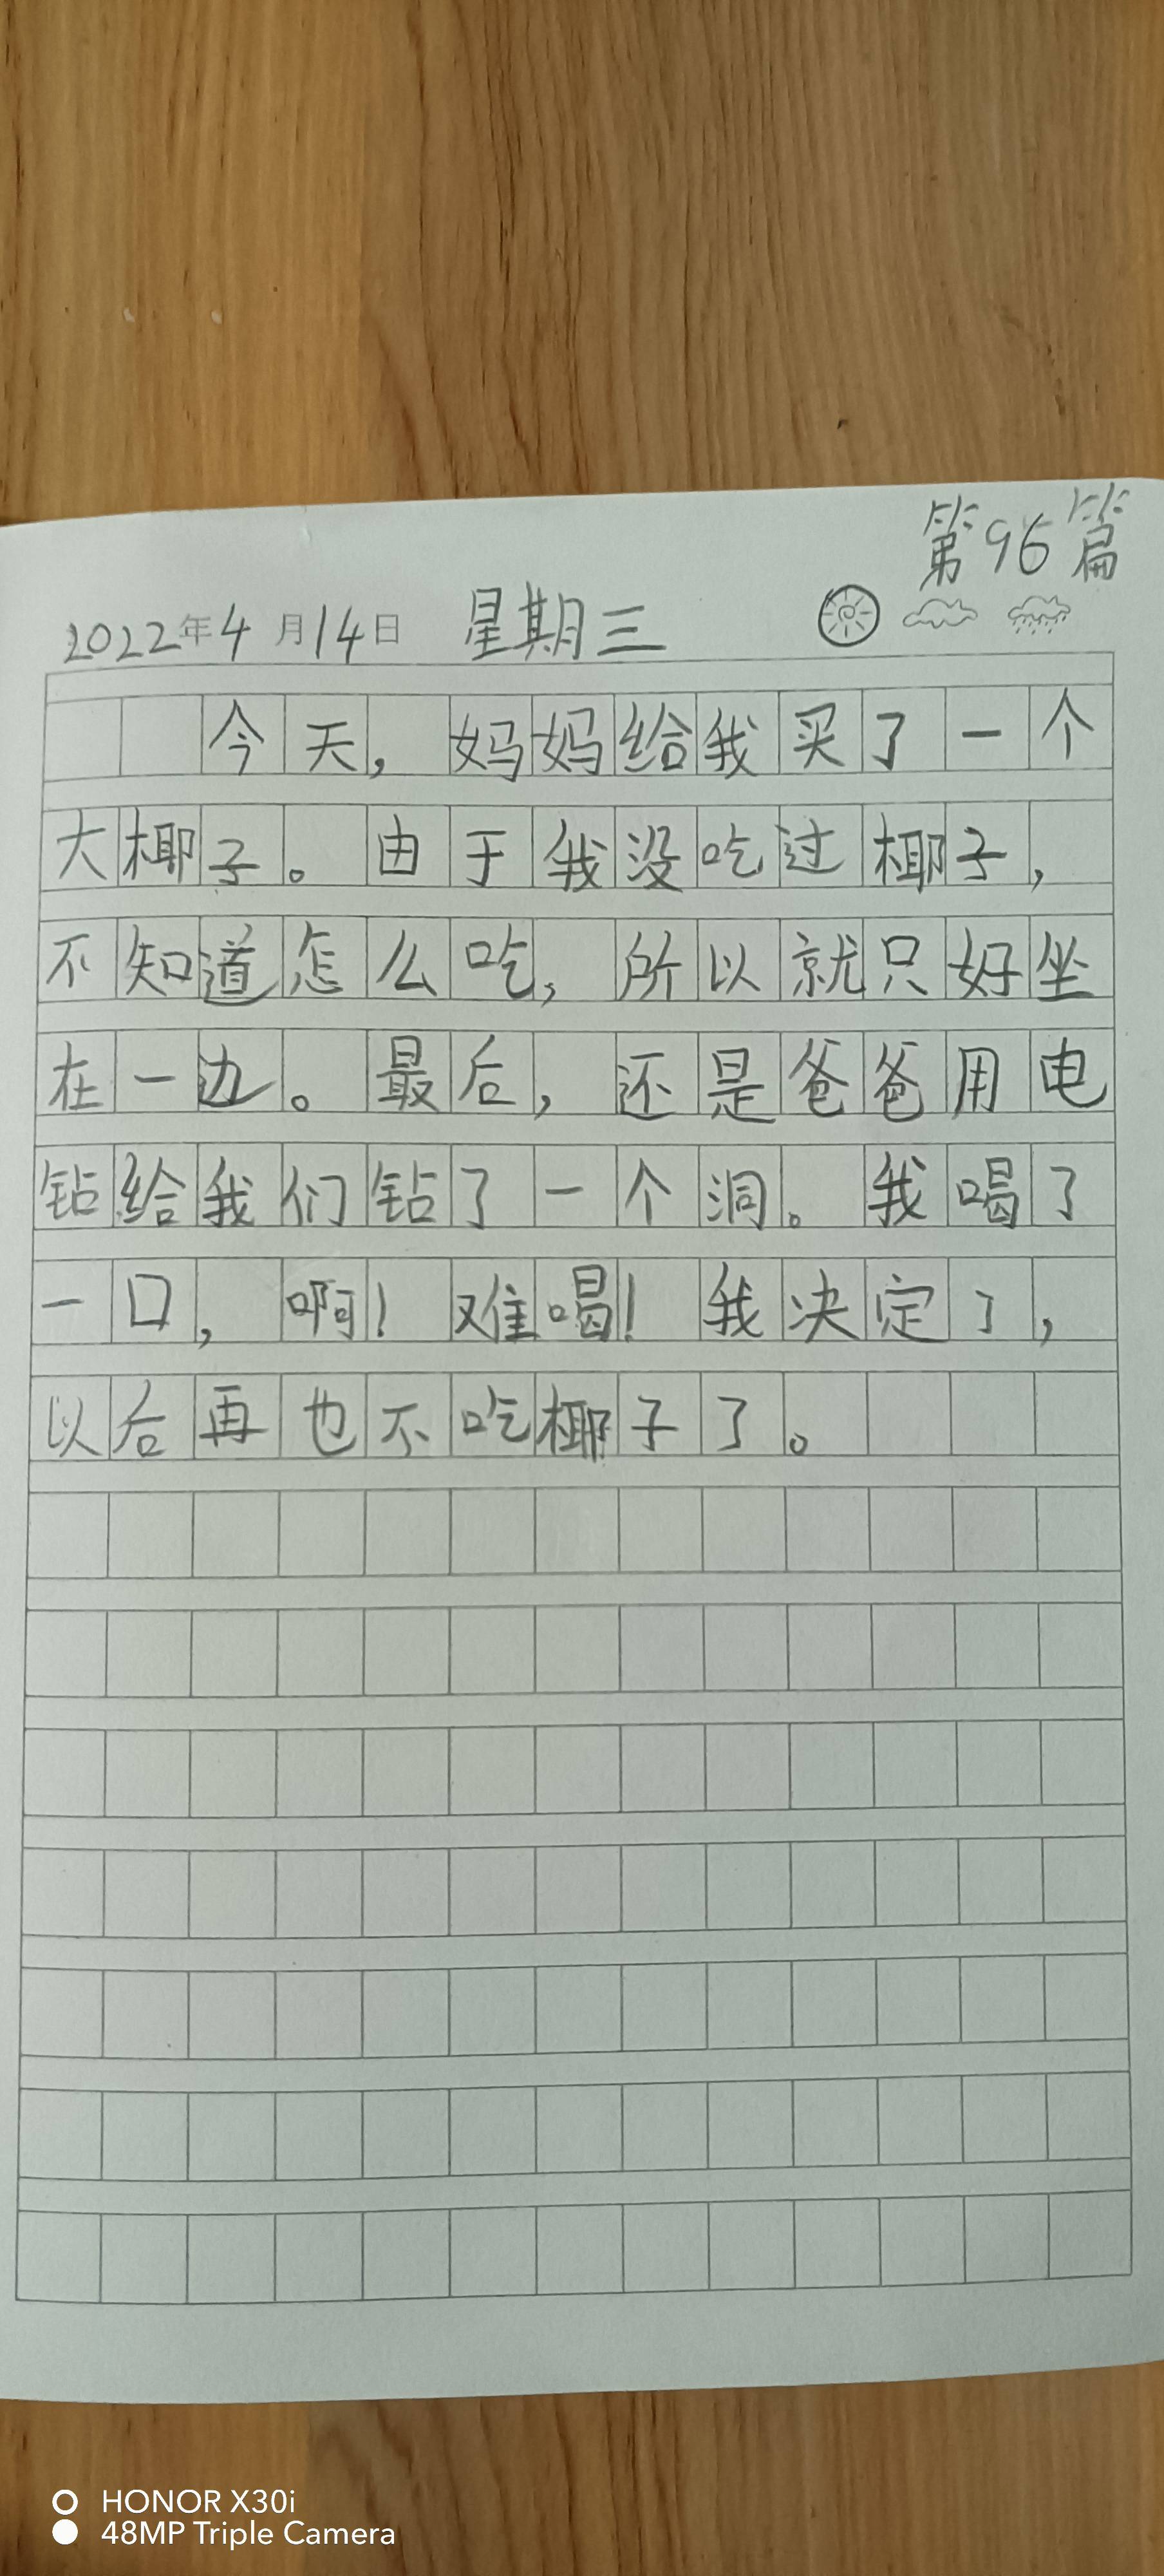 第96篇
2022年4月14日 星期三
今天，妈妈给我买了一个
大椰子。由于我没吃过椰子，
不知道怎么吃，所以就只好坐
在一边。最后，还是爸爸用电
钻给我们钻了一个洞。我喝了
一口，啊！难喝！我决定了，
以后再也不吃椰子了。
HONOR X30i
48MP Triple Camera